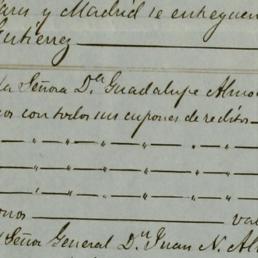 Paris y Madrid se entreguen
Gutierrez
la Señora D.ª Guadalupe Almo
nos con todos sus cupones de redito
— " — " — " — " —
— " — " — " — " —
— " — " — " — " —
onos — val
Señor General D.n Juan N. Al